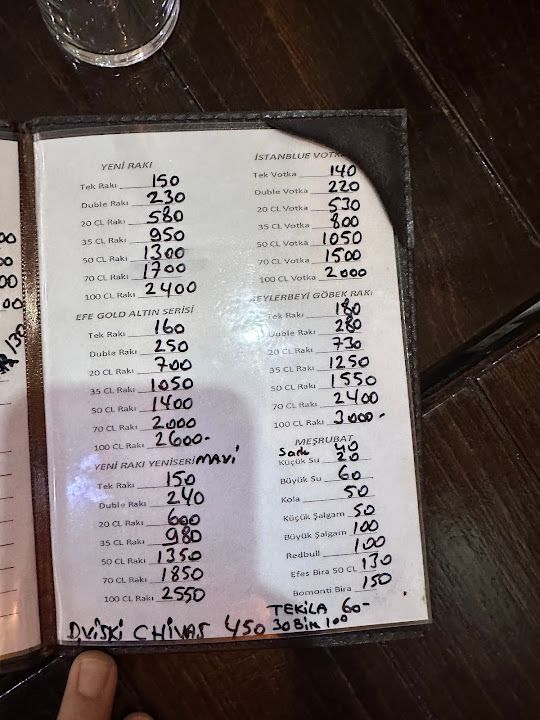 YENİ RAKI
Tek Rakı 150
Duble Rakı 230
20 CL Rakı 580
35 CL Rakı 950
50 CL Rakı 1300
70 CL Rakı 1700
100 CL Rakı 2400
EFE GOLD ALTIN SERİSİ
Tek Rakı 160
Duble Rakı 250
20 CL Rakı 700
35 CL Rakı 1050
50 CL Rakı 1400
70 CL Rakı 2000
100 CL Rakı 2600-
YENİ RAKI YENİSERİ MAVİ
Tek Rakı 150
Duble Rakı 240
20 CL Rakı 600
35 CL Rakı 980
50 CL Rakı 1350
70 CL Rakı 1850
100 CL Rakı 2550
D.VİSKİ CHİVAS 450
İSTANBLUE VOTKA
Tek Votka 140
Duble Votka 220
20 CL Votka 530
35 CL Votka 800
50 CL Votka 1050
70 CL Votka 1500
100 CL Votka 2000
BEYLERBEYİ GÖBEK RAKI
Tek Rakı 180
Duble Rakı 280
20 CL Rakı 730
35 CL Rakı 1250
50 CL Rakı 1550
70 CL Rakı 2400
100 CL Rakı 3000-
MEŞRUBAT
Sade 40
Küçük Su 20
Büyük Su 60
Kola 50
Küçük Şalgam 50
Büyük Şalgam 100
Redbull 100
Efes Bira 50 CL 130
Bomonti Bira 150
TEKİLA 60-
100